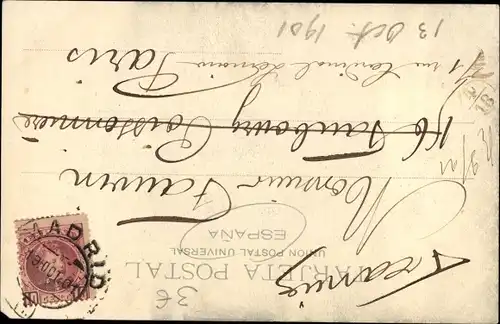 TARJETA POSTAL
UNION POSTAL UNIVERSAL
ESPAÑA
36
Monsieur Fauvin
146 Faubourg Poissonnière
71 rue Cardinal Lemoine
Paris
13 Oct. 1901
MADRID